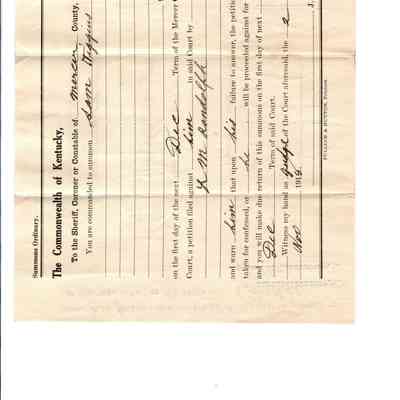 Summons Ordinary.
The Commonwealth of Kentucky,
To the Sheriff, Coroner or Constable of Mercer County,
You are commanded to summon Sam Higgins
on the first day of the next Dec Term of the Mercer
Court, a petition filed against him in said Court by
M Randolph
and warn him that upon his failure to answer, the petition
taken for confessed, or he will be proceeded against for
and you will make due return of this summons on the first day of next
Dec Term of said Court.
Witness my hand as Judge of the Court aforesaid, the 2
Nov 191